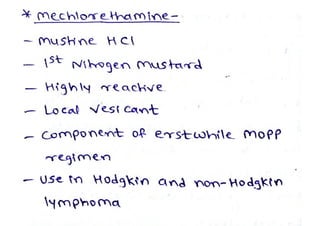 * Mechlorethamine-
- Mustine HCl
- 1st Nitrogen Mustard
- Highly reactive
- Local Vesicant
- Component of erstwhile MOPP
regimen
- Use in Hodgkin and non-Hodgkin
lymphoma